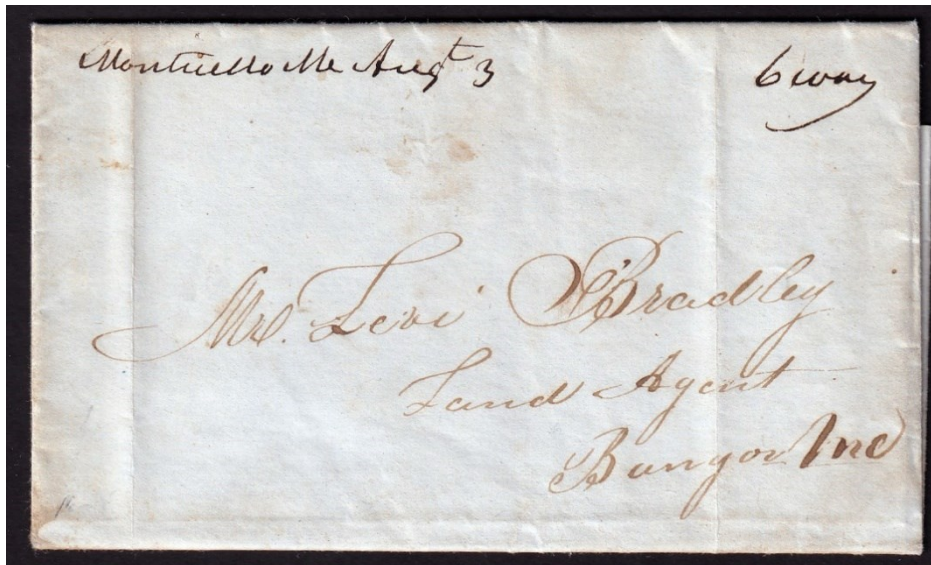 Monticello Me Augt 3
6 way
Mr. Levi Bradley
Land Agent
Bangor Me